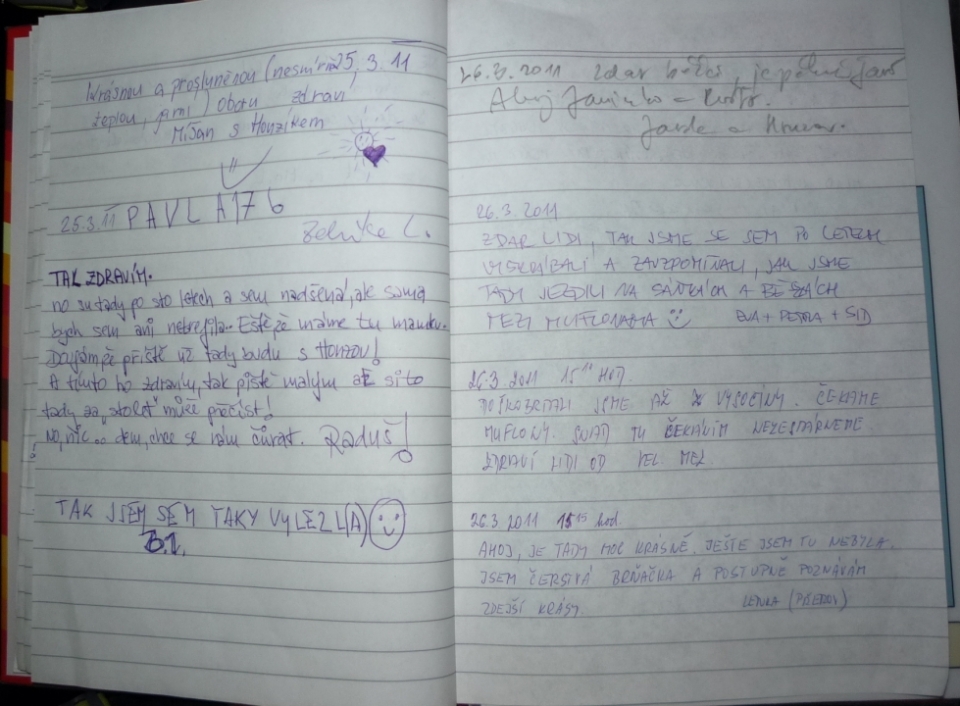 Krásnou a prosluněnou (nesmírně 25. 3. 11
teplou, jarní) oboru zdraví
Míšan s Honzíkem
25.3.11 PAVLA 176
TAK ZDRAVÍM.
no su tady po sto letech a sem nadšená, ale sama
bych sem ani netrefila. Eštěže máme tu
Doufám, že příště už tady budu s Honzou!
A tímto ho zdravím, tak příště malým ať si to
tady za "stolet" může přečíst!
No, nic... dem, chce se nám čůrat. Raduš!
TAK JSEM SEM TAKY VYLEZL(A)
26.3.2011 Zdar běžci, je pěkný
Ahoj
Jarda a
26.3.2011
ZDAR LIDI, TAK JSME SE SEM PO LETECH
VYŠKRÁBALI A ZAVZPOMÍNALI, JAK JSME
TADY JEZDILI NA SÁŇKÁCH A BĚŽKÁCH
MEZI MUFLONAMA EVA + PETRA + SID
26.3. 2011 15¹¹ HOD.
JSME AŽ Z VYSOČINY. ČEKÁME
MUFLONY. SNAD TU ČEKÁNÍM NEZESTÁRNEME.
ZDRAVÍ LIDI OD VEL. MEZ.
26.3 2011 15¹⁵ hod.
AHOJ, JE TADY MOC KRÁSNĚ. JEŠTĚ JSEM TU NEBYLA.
JSEM ČERSTVÁ BRŇAČKA A POSTUPNĚ POZNÁVÁM
ZDEJŠÍ KRÁSY. LENKA